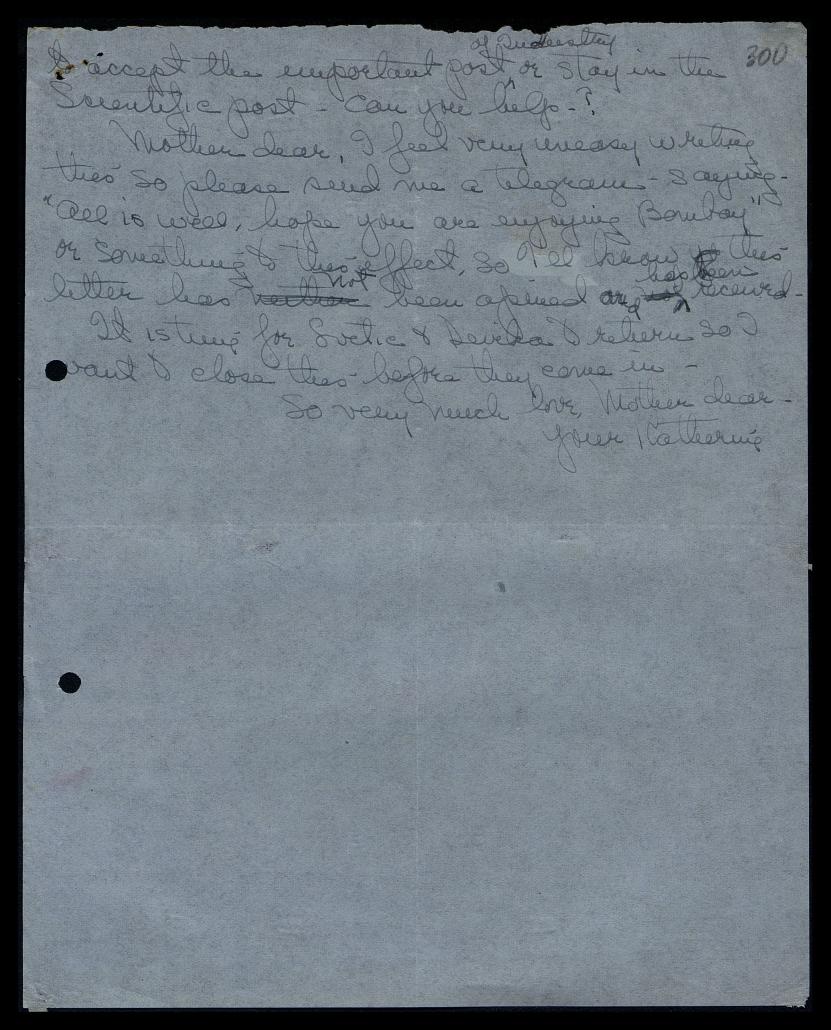 of Industry 300
to accept the important post or stay in the
Scientific post - Can you help - ?
Mother dear, I feel very uneasy writing
this so please send me a telegram - saying -
"All is well, hope you are enjoying Bombay"
or something to this effect, so I'll know this
not has been
letter has been opened and received -
It is time for Svetic & Devika to return so I
want to close this before they come in -
So very much love, Mother dear -
your Katherine